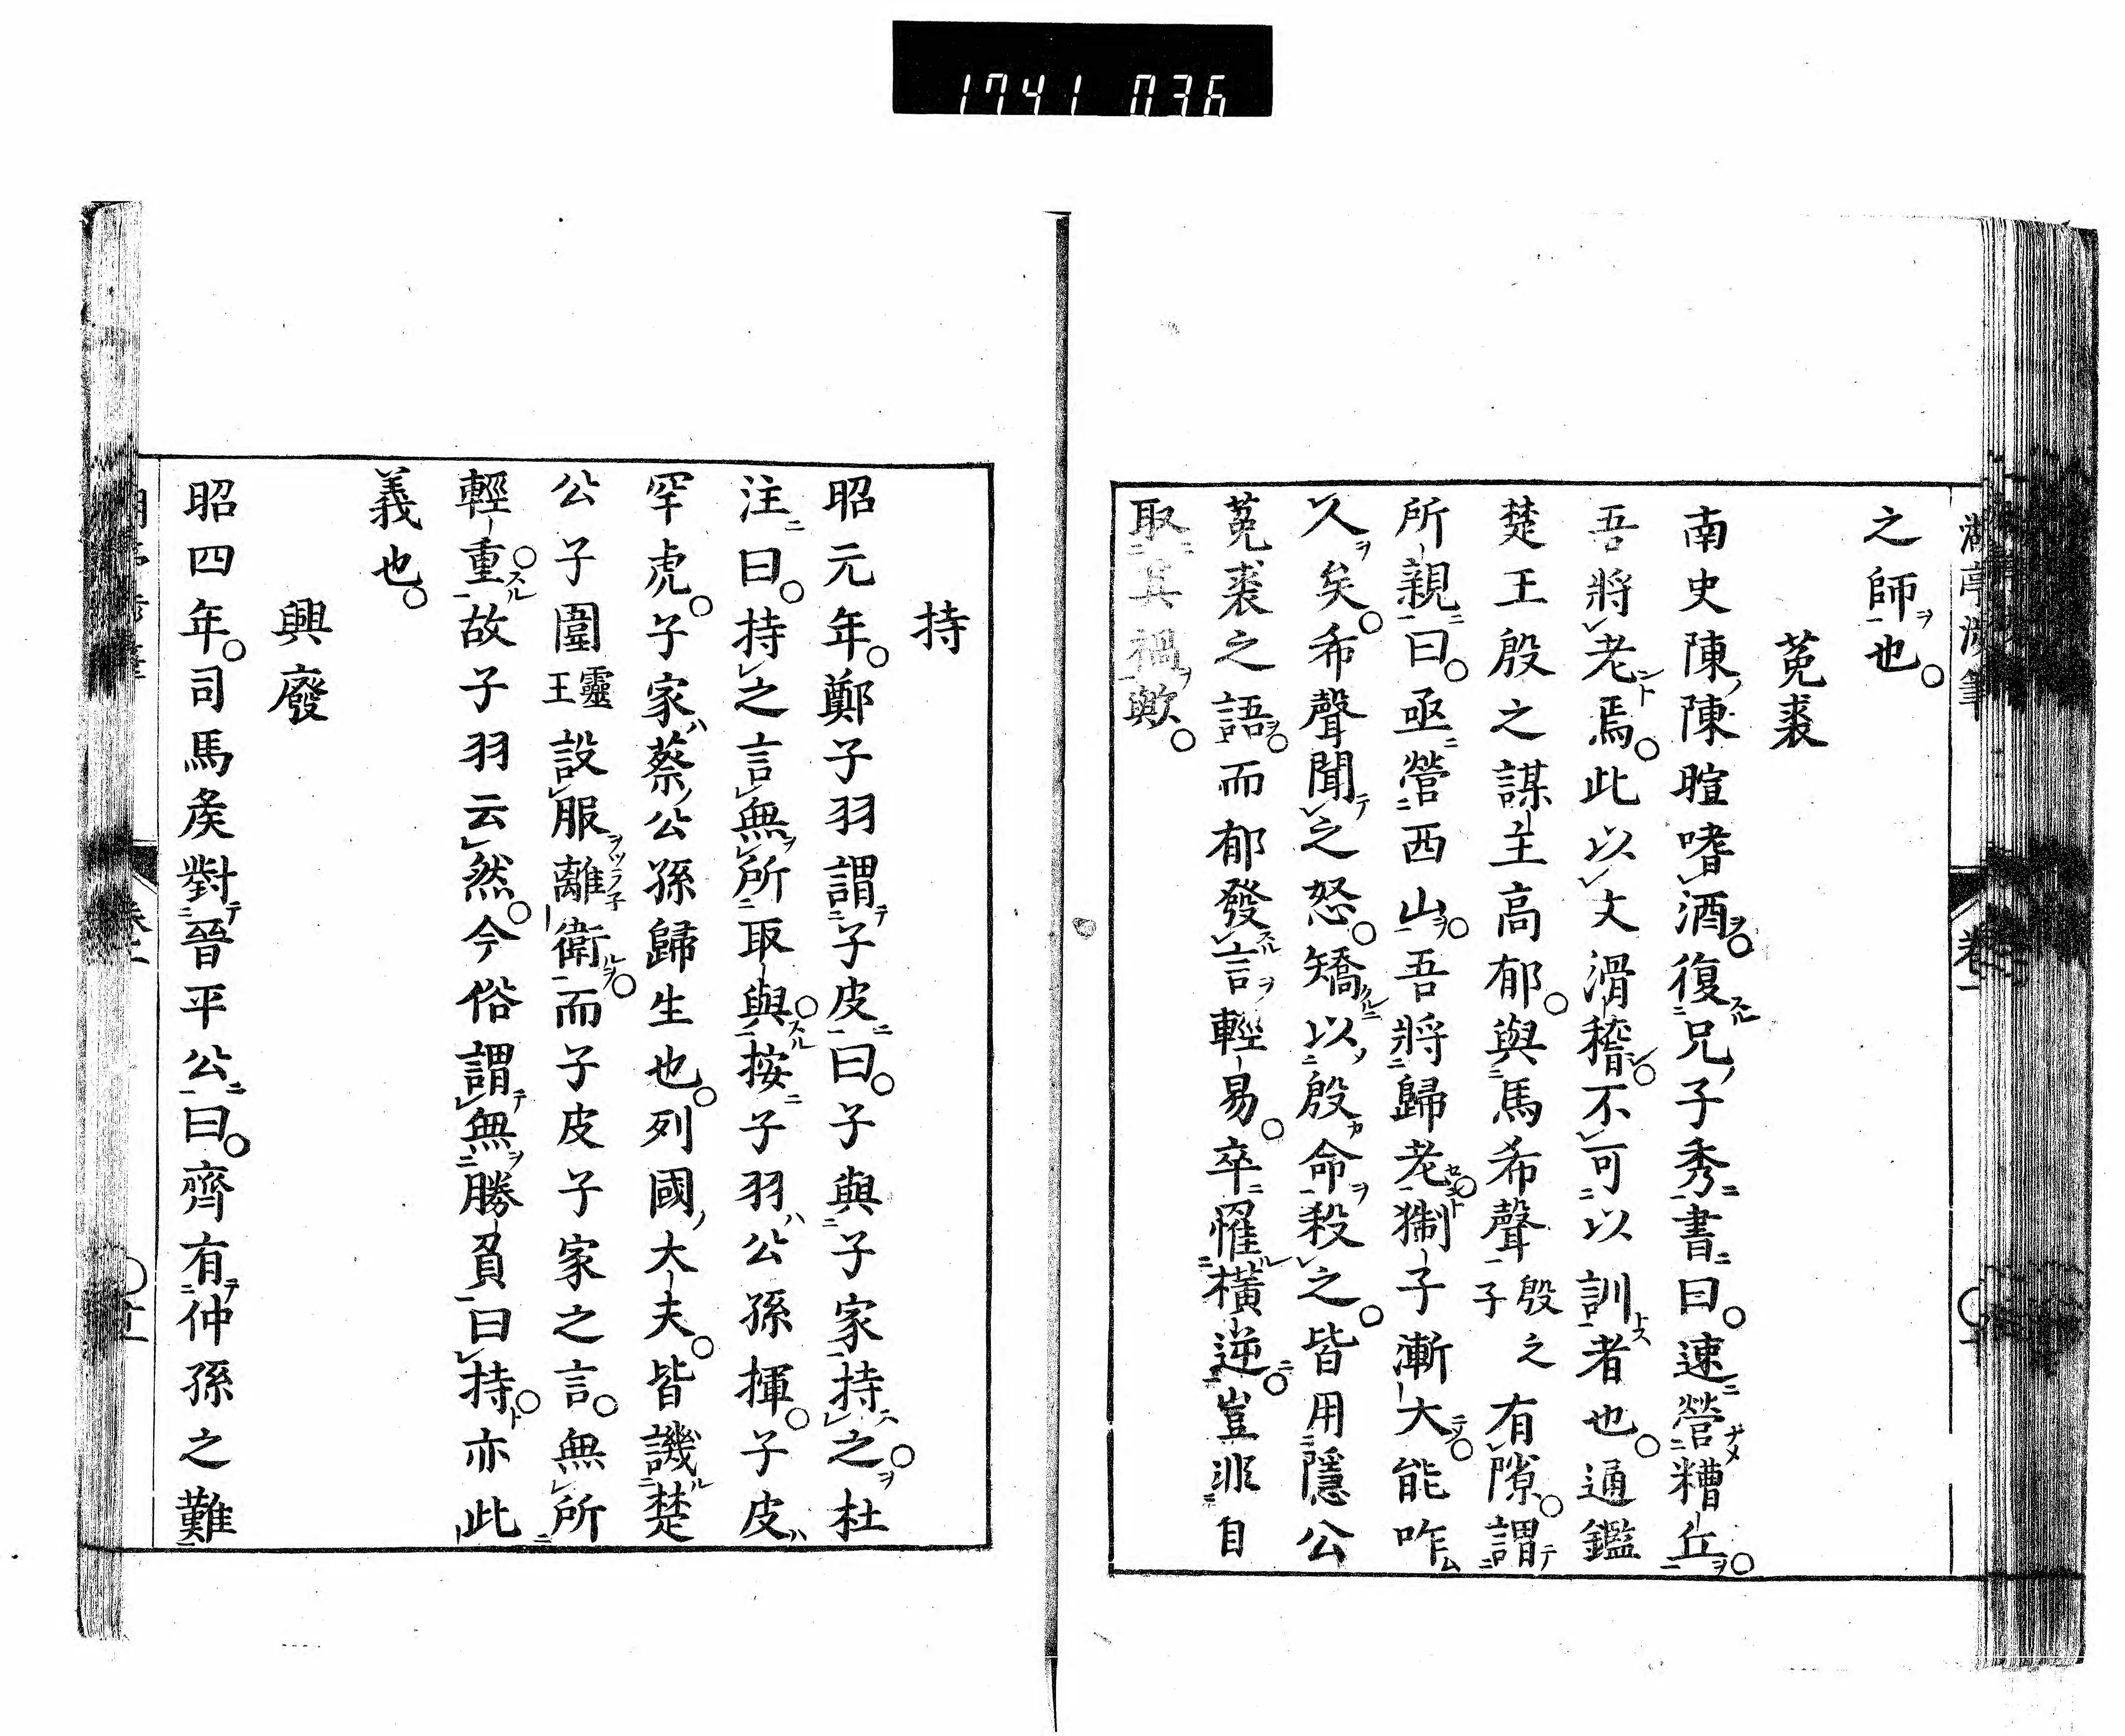 1741 036
之師也。
菟裘
南史陳陳暄嗜酒。復兄子秀書曰。速營糟丘。
吾將老焉。此以文滑稽。不可以訓者也。通鑑
楚王殷之謀主高郁。與馬希聲殷之子有隙。謂
所親曰。亟營西山。吾將歸老。猘子漸大。能咋
人矣。希聲聞之怒。矯以殷命殺之。皆用隱公
菟裘之語。而郁發言輕易。卒罹橫逆。豈非自
取其禍歟。
持
昭元年。鄭子羽謂子皮曰。子與子家持之。杜
注曰。持之言無所取與。按子羽公孫揮。子皮
罕虎。子家蔡公孫歸生也。列國大夫。皆譏楚
公子圍靈王設服離衛。而子皮子家之言。無所
輕重。故子羽云然。今俗謂無勝負曰持。亦此
義也。
興廢
昭四年。司馬矦對晉平公曰。齊有仲孫之難